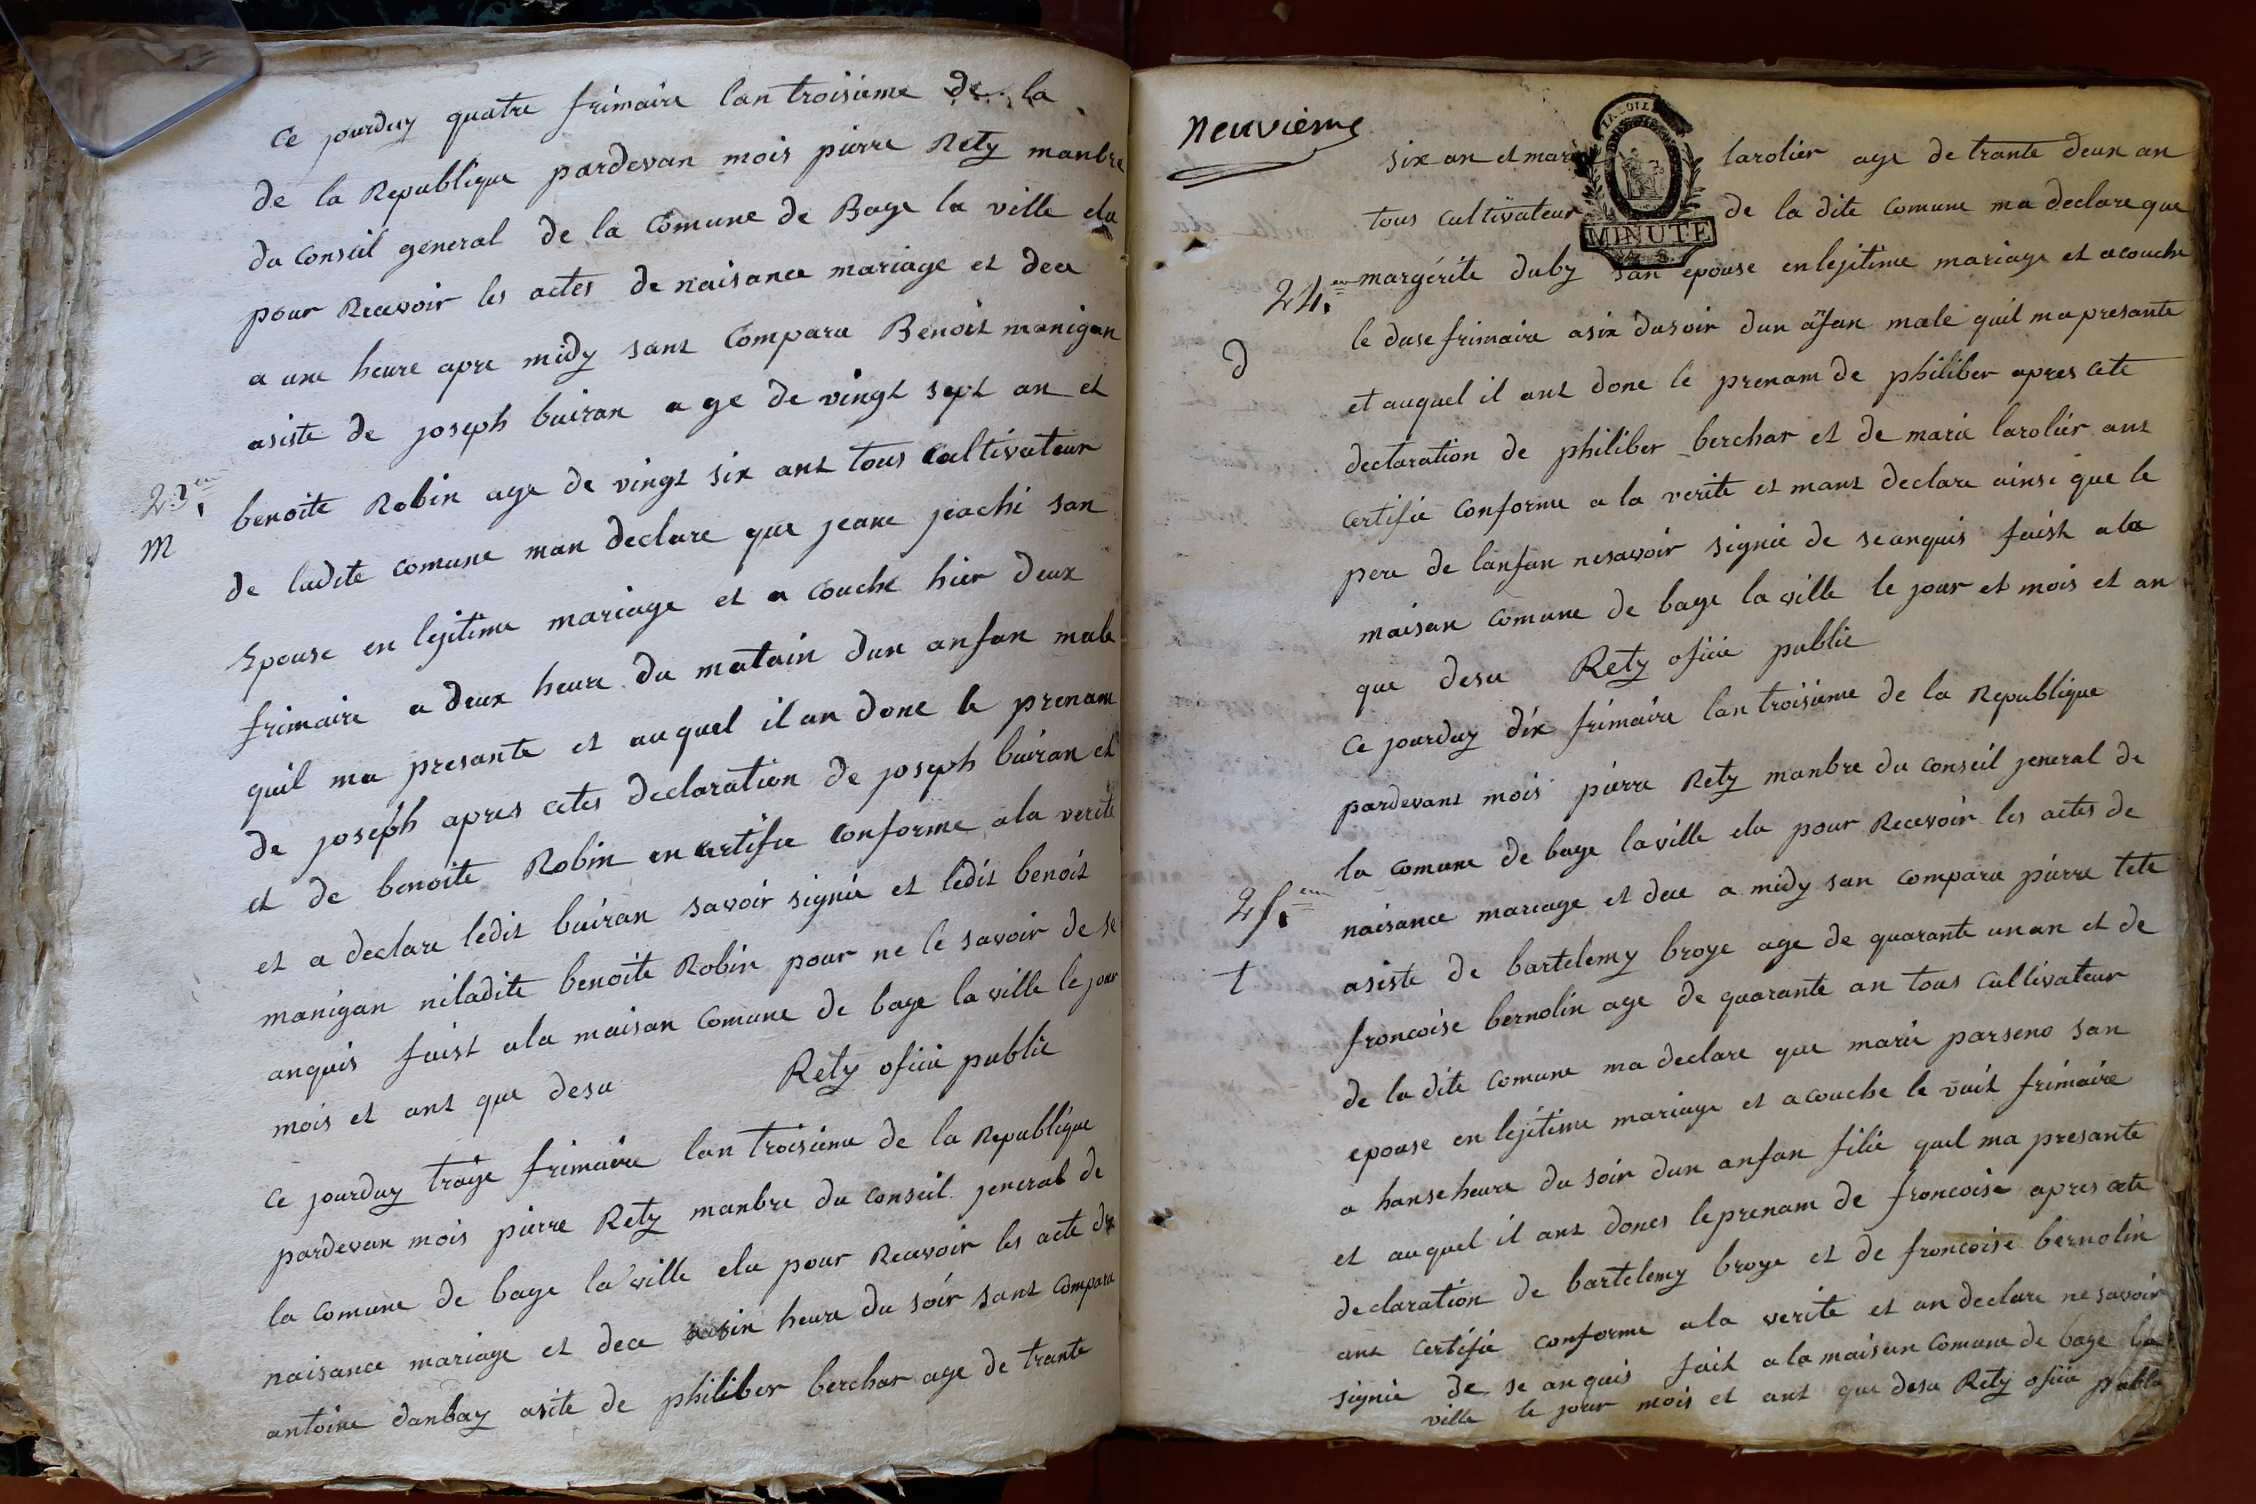 Ce jourduy quatre frimaire lan troisieme de la
de la Republique pardevan mois pierre Rety manbre
du conseil general de la Comune de Bage la ville elu
pour Recevoir les actes de naisance mariage et dece
a une heure apre midy sant Comparu Benoit manigan
asiste de joseph buiran age de vingt sept an et
23.em
benoite Robin age de vingt six ant tous Cultivateur
m
de ladite comune man declare que jeane jeachi san
Epouse en lejitime mariage et a couche hier deux
frimaire a deux heure du matain dun anfan male
quil ma presante et auquel il an done le prenam
de joseph apres cetes declaration de joseph buiran et
et de benoite Robin en certifie conforme a la verite
et a declare ledit buiran savoir signie et ledit benoit
manigan niladite benoite Robin pour ne le savoir de se
anquis faist ala maisan Comune de bage la ville le jour
mois et ant que desu Rety ofice public
Ce jourduy traije frimaire lan troisieme de la Republique
pardevan mois pierre Rety manbre du conseil jeneral de
la comune de bage la ville elu pour Recevoir les acte de
naisance mariage et dece a six heure du soir sant Comparu
antoine danbay asite de philiber berchar age de trante
neuvieme
six an et marie larolier age de trante deux an
tous cultivateur de la dite comune ma declare que
MINUTE
24.em
margérite duby san epouse en lejitime mariage et acouche
le duse frimaire asix dusoir dun anfan male quil ma presante
d
et auquel il ant done le prenam de philiber apres cete
declaration de philiber berchar et de marie larolier ant
certifie conforme a la verite et mant declare ainsi que le
pere de lanfan nesavoir signie de seanquis faist ala
maisan comune de bage la ville le jour et mois et an
que desu Rety ofice public
Ce jourduy dix frimaire lan troisieme de la Republique
pardevant mois pierre Rety manbre du conseil jeneral de
la comune de bage laville elu pour Recevoir les actes de
25.em
naisance mariage et dece a midy san comparu pierre tete
t
asiste de bartelemy broye age de quarante unan et de
francoise bernolin age de quarante an tous cultivateur
de la dite comune ma declare que marie parseno san
epouse en lejitime mariage et acouche le vuit frimaire
a hanse heure du soir dun anfan filie quel ma presante
et auquel il ant dones leprenam de francoise apres cete
declaration de bartelemy broye et de francoise bernolin
ant certifie conforme ala verite et an declare ne savoir
signie de se anquis fait a la maisan Comune de bage la
ville le jour mois et ant que desu Rety ofice public